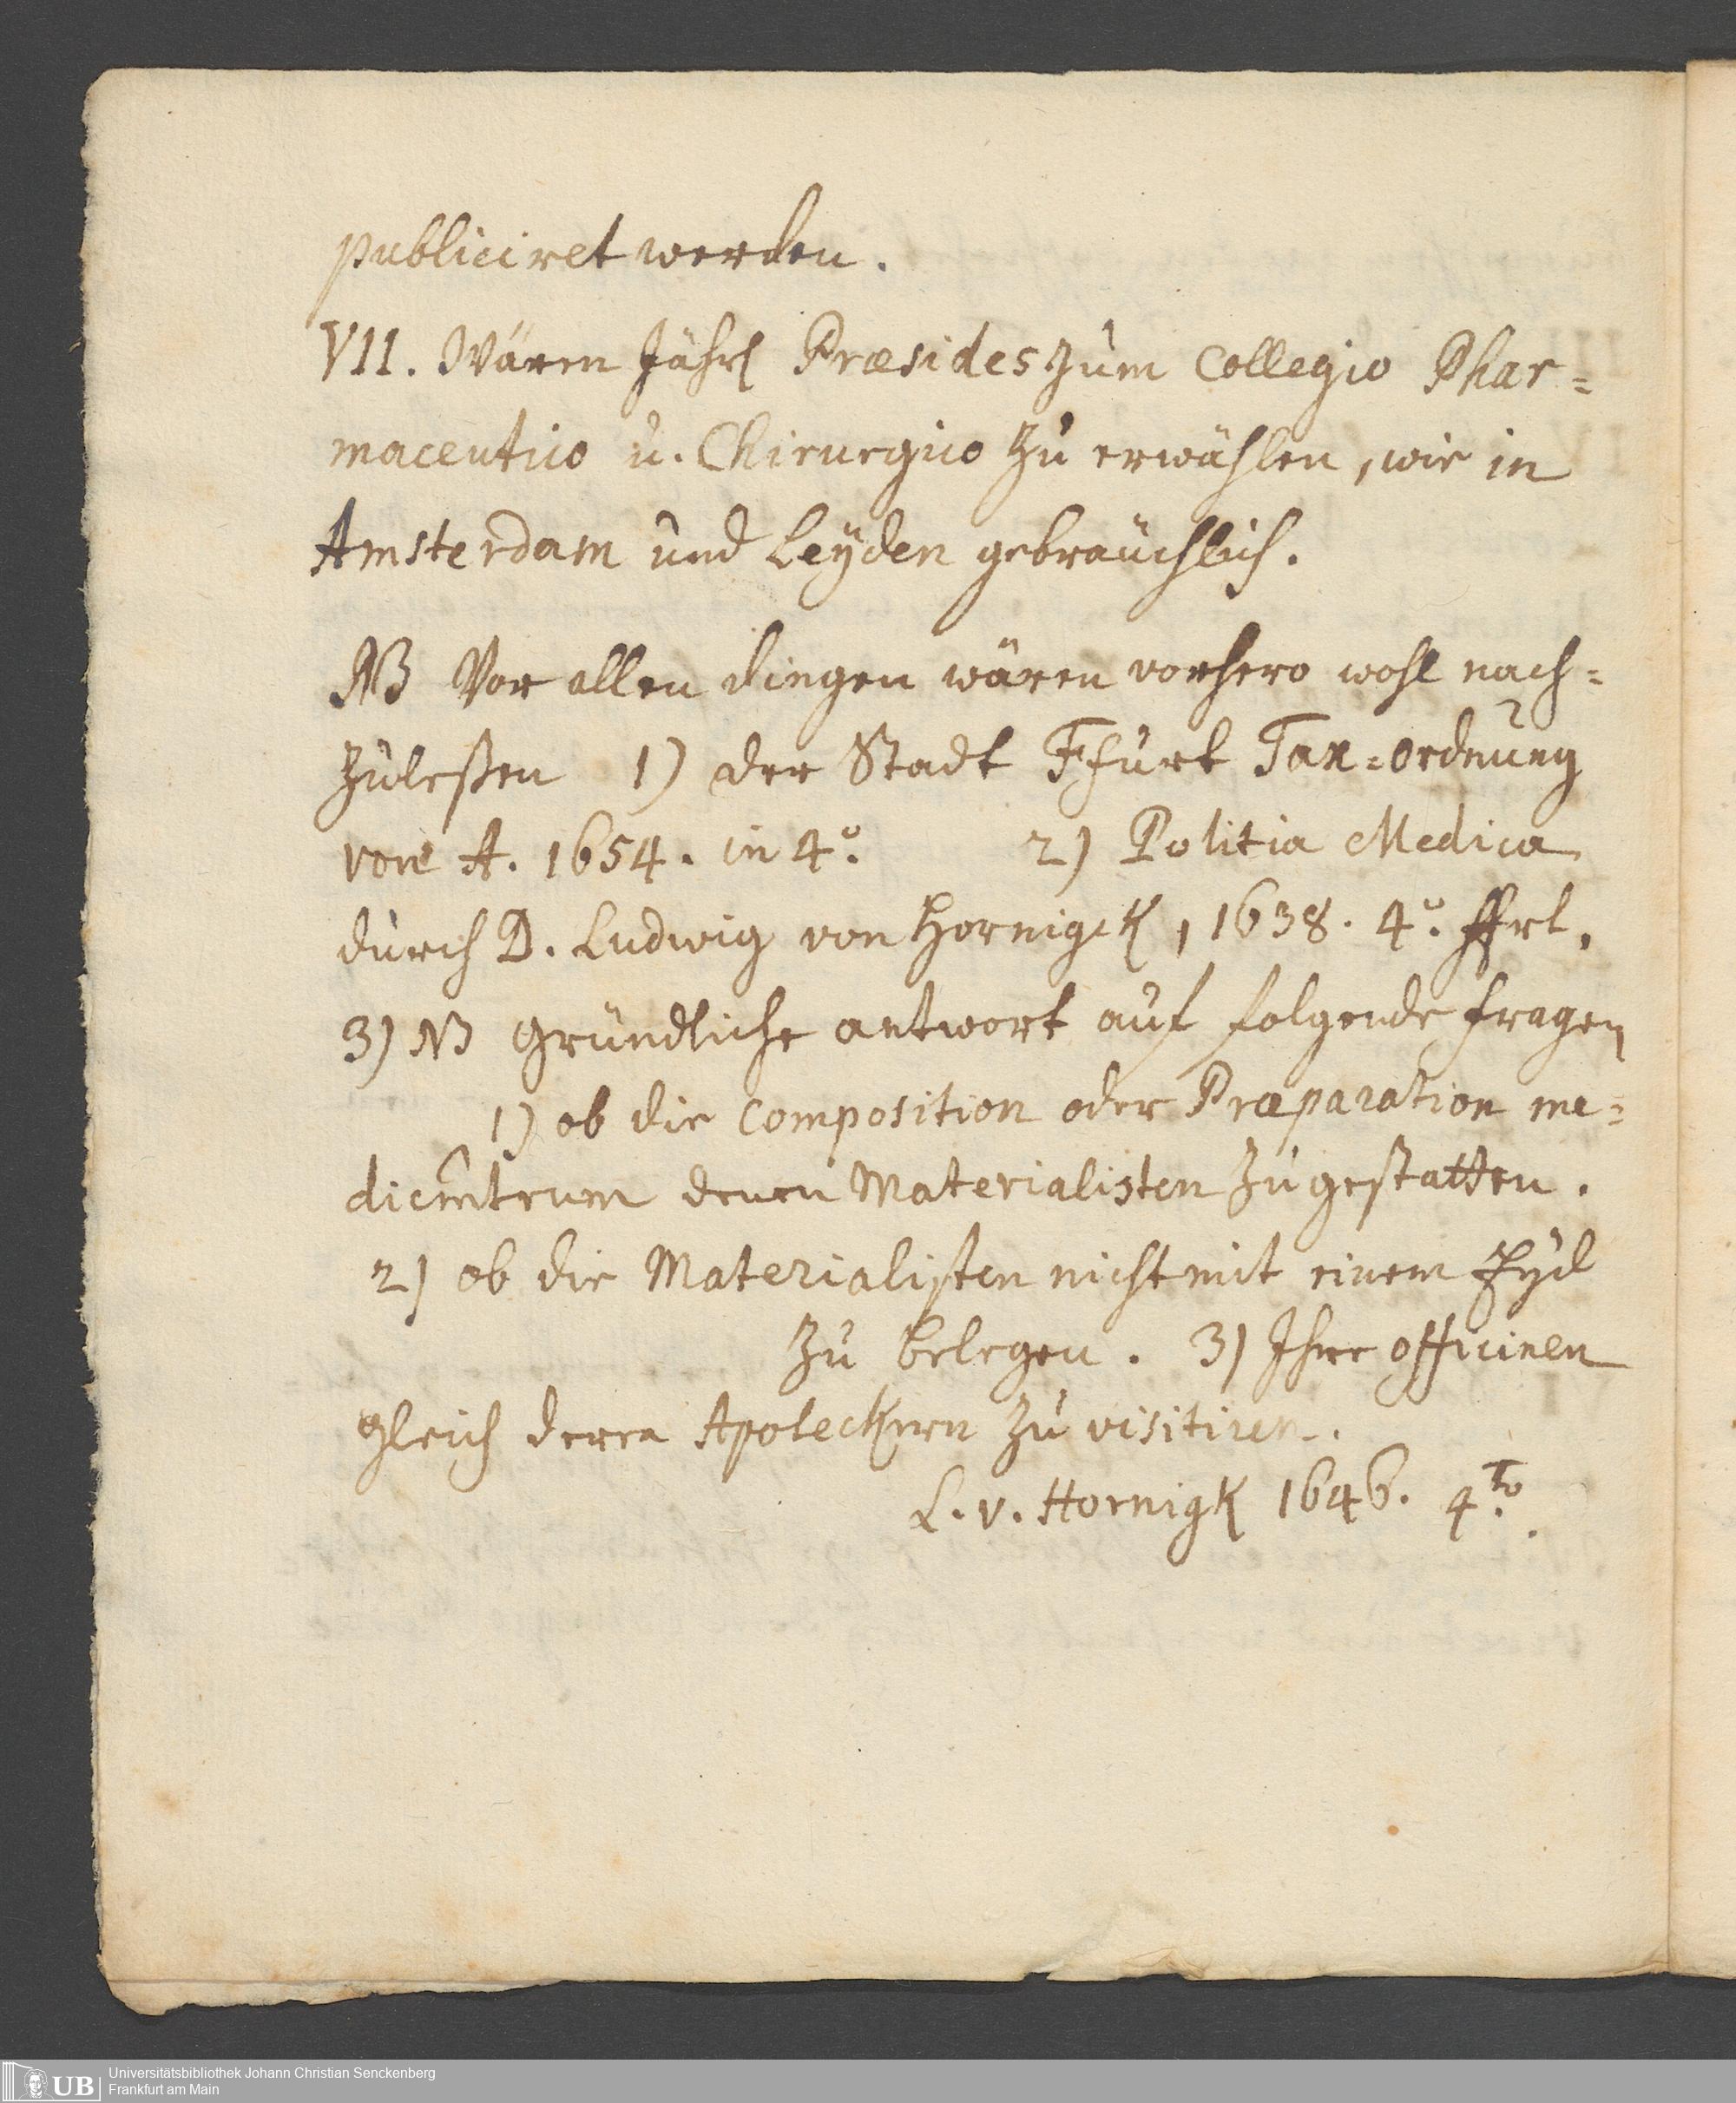 publiciret werden.
VII. Wären Jährl Præsides zum Collegio Phar=
maceutico u. Chirurgico zu erwählen, wie in
Amsterdam und Leyden gebräuchlich.
NB Vor allen dingen wären vorhero wohl nach=
zuleßen 1) der Stadt Ffurt Tax=ordnung
von A. 1654. in 4º. 2) Politia Medica
durch D. Ludwig von Hornigck, 1638. 4º. ffrt.
3) NB Gründliche antwort auf folgende fragen
1) ob die Composition oder Præparation me=
dicmtrum denen Materialisten zu gestatten.
2) ob die Materialisten nicht mit einem Eyd
zu belegen. 3) Ihre officinen
gleich deren Apoteckern zu visitiren.
L. v. Hornigk 1646. 4to.
UB
Universitätsbibliothek Johann Christian Senckenberg
Frankfurt am Main